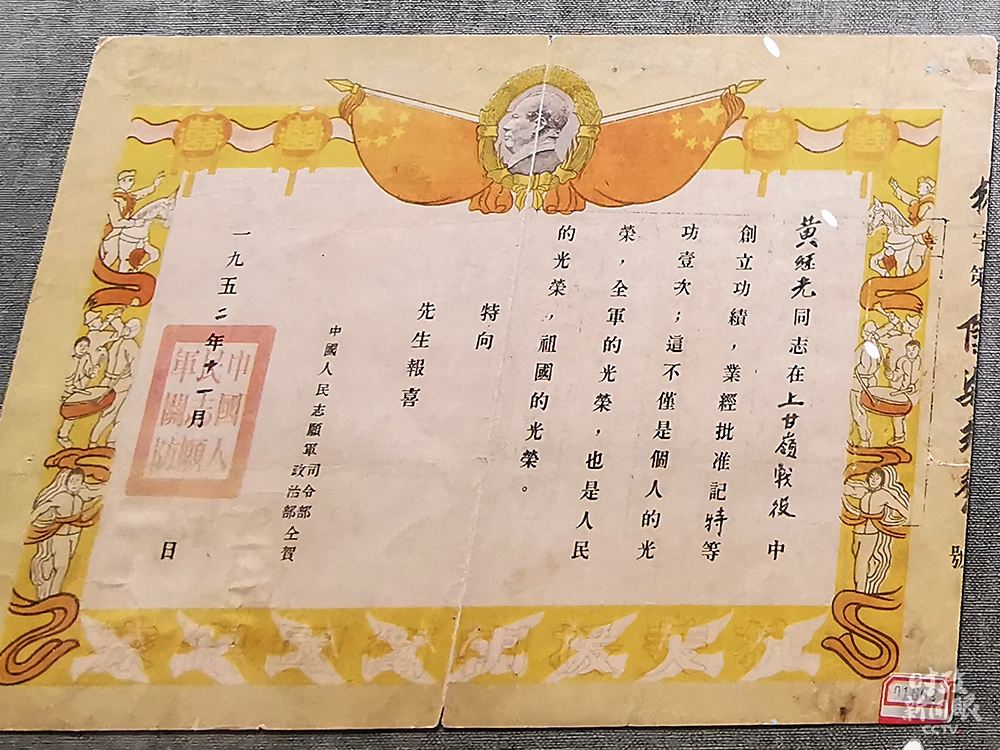 黃继光同志在上甘嶺戰役中
創立功績，業經批准記特等
功壹次；這不僅是個人的光
榮，全軍的光榮，也是人民
的光榮，祖國的光榮。
特向
先生報喜
中國人民志願軍司令部
政治部仝賀
一九五二年十一月 日
中國人
民志願
軍關防
字第
號
CCTV